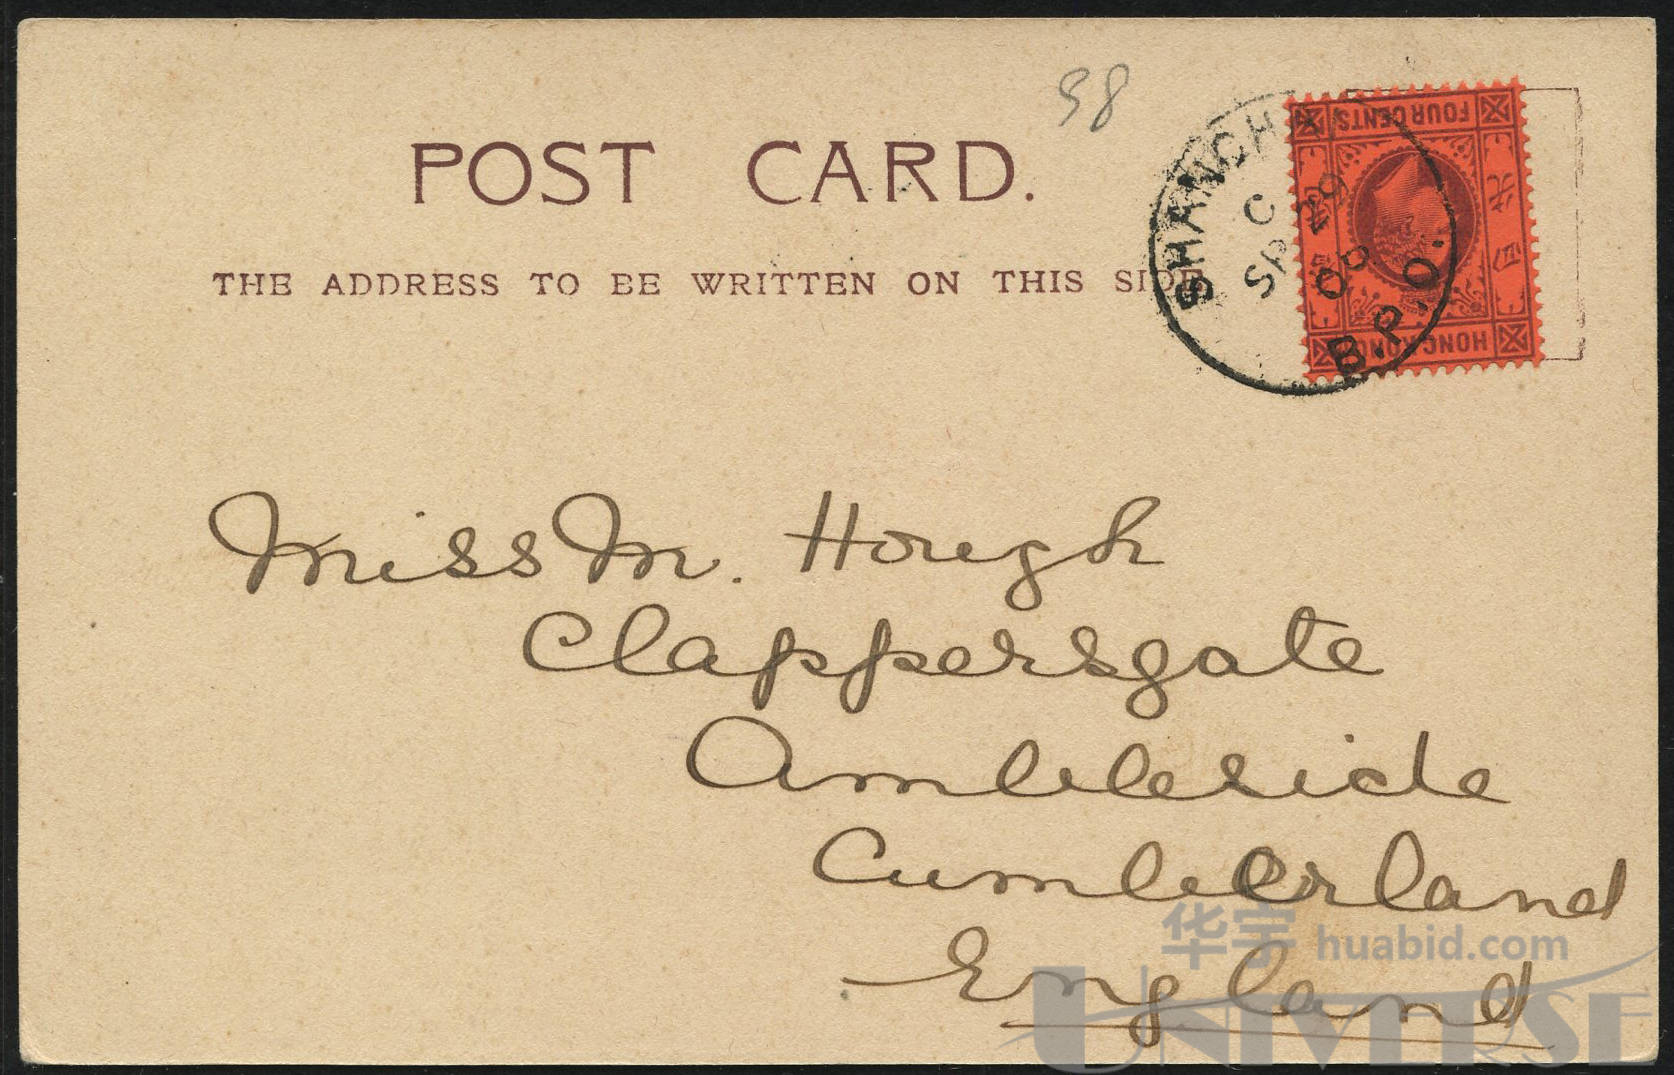 98
POST CARD.
THE ADDRESS TO BE WRITTEN ON THIS SIDE
SHANGHAI B.P.O.
C
SP 29
FOUR CENTS
HONG KONG
Miss M. Hough
Clappersgate
Ambleside
Cumberland
England
华宇 huabid.com
UNIVERSE